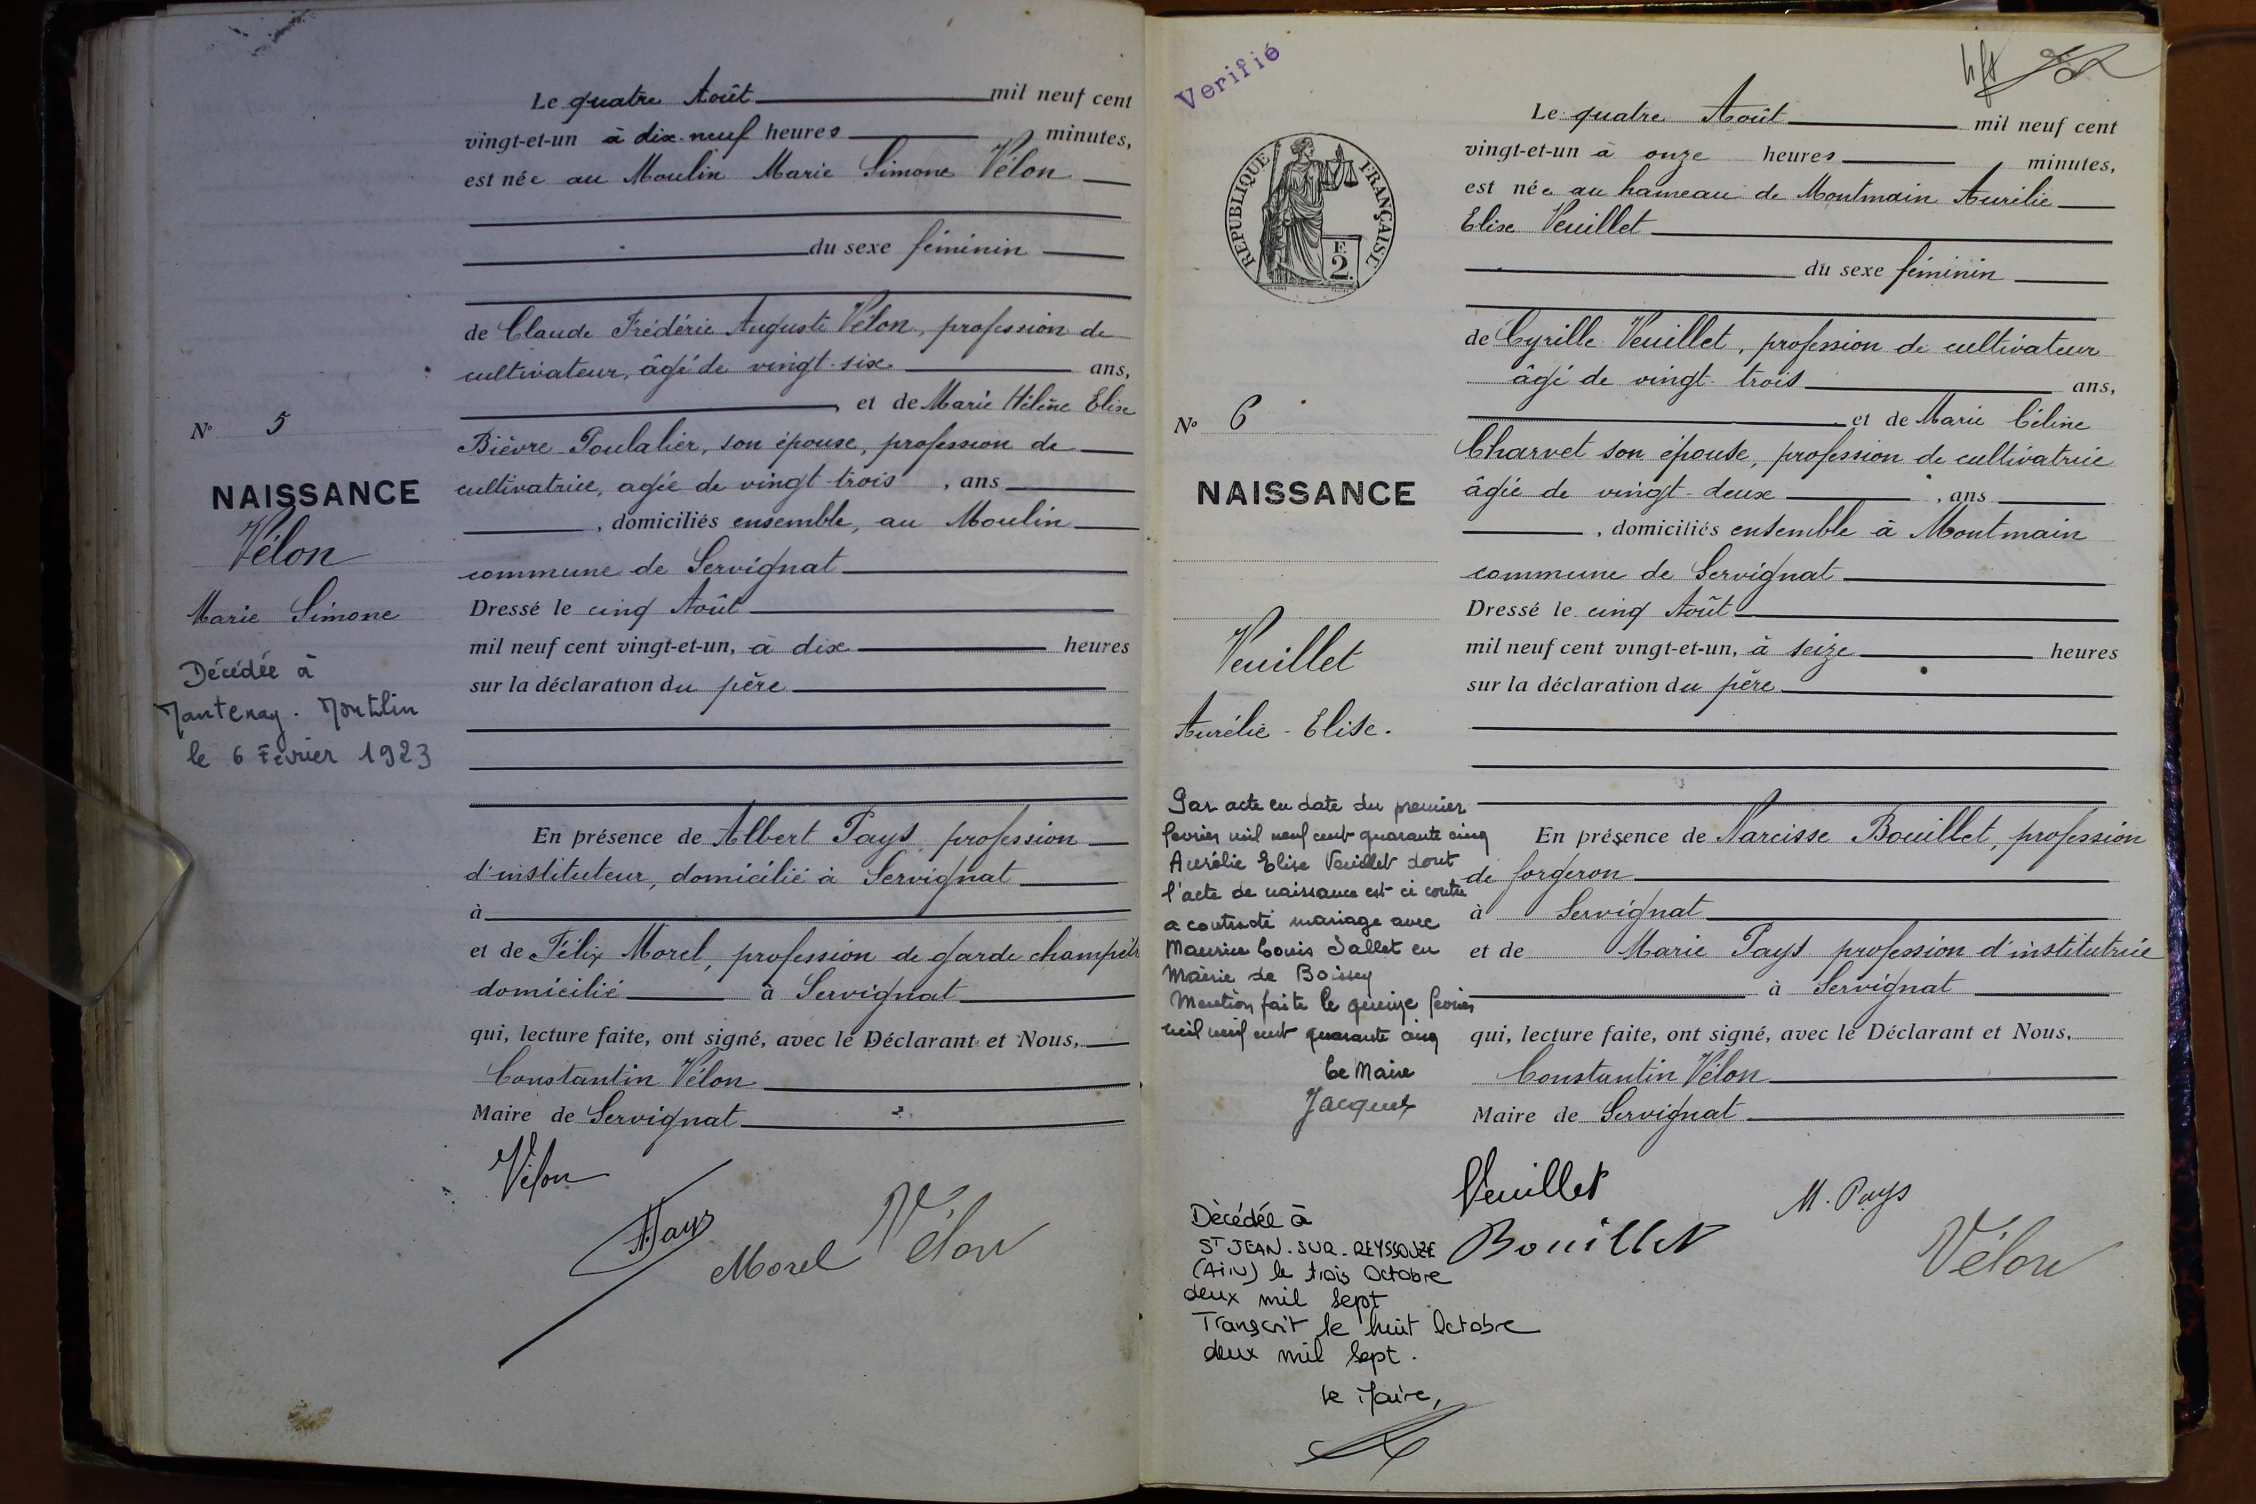 Le quatre Août mil neuf cent
vingt-et-un à dix-neuf heures minutes,
est née au Moulin Marie Simone Vélon
du sexe féminin
de Claude Frédéric Auguste Vélon, profession de
cultivateur, âgé de vingt-six ans,
et de Marie Hélène Elise
Bièvre Poulalier, son épouse, profession de
cultivatrice, agée de vingt-trois, ans
, domiciliés ensemble, au Moulin
commune de Servignat
Dressé le cinq Août
mil neuf cent vingt-et-un, à dix heures
sur la déclaration du père
En présence de Albert Pays, profession
d'instituteur, domicilié à Servignat
à
et de Félix Morel, profession de garde champêtr
domicilié à Servignat
qui, lecture faite, ont signé, avec le Déclarant et Nous,
Constantin Vélon
Maire de Servignat
Vélon
A. Pays
Morel Vélon
N° 5
NAISSANCE
Vélon
Marie Simone
Décédée à
Mantenay. Montlin
le 6 Février 1923
Verifié
RÉPUBLIQUE FRANÇAISE
F.
2.
N° 6
NAISSANCE
Veuillet
Aurélie - Elise.
Par acte en date du premier
fevrier mil neuf cent quarante cinq
Aurélie Elise Veuillet dont
l'acte de naissance est ci contre
a contracté mariage avec
Maurice Louis Sallet en
Mairie de Boissey
Mention faite le quinze fevrier
mil neuf cent quarante cinq
Le Maire
Jacquet
Dècédée à
ST JEAN-SUR-REYSSOUZE
(AiN) le trois Octobre
deux mil sept
Transcrit le huit Octobre
deux mil sept.
Le Maire,
Le quatre Août mil neuf cent
vingt-et-un à onze heures minutes,
est née au hameau de Montmain Aurélie
Elise Veuillet
du sexe féminin
de Cyrille Veuillet, profession de cultivateur
âgé de vingt-trois ans,
et de Marie Céline
Charvet son épouse, profession de cultivatrice
âgée de vingt-deux, ans
, domiciliés ensemble à Montmain
commune de Servignat
Dressé le cinq Août
mil neuf cent vingt-et-un, à seize heures
sur la déclaration du père
En présence de Narcisse Bouillet, profession
de forgeron
à Servignat
et de Marie Pays profession d'institutrice
à Servignat
qui, lecture faite, ont signé, avec le Déclarant et Nous,
Constantin Vélon
Maire de Servignat
Veuillet
M. Pays
Bouillet
Vélon